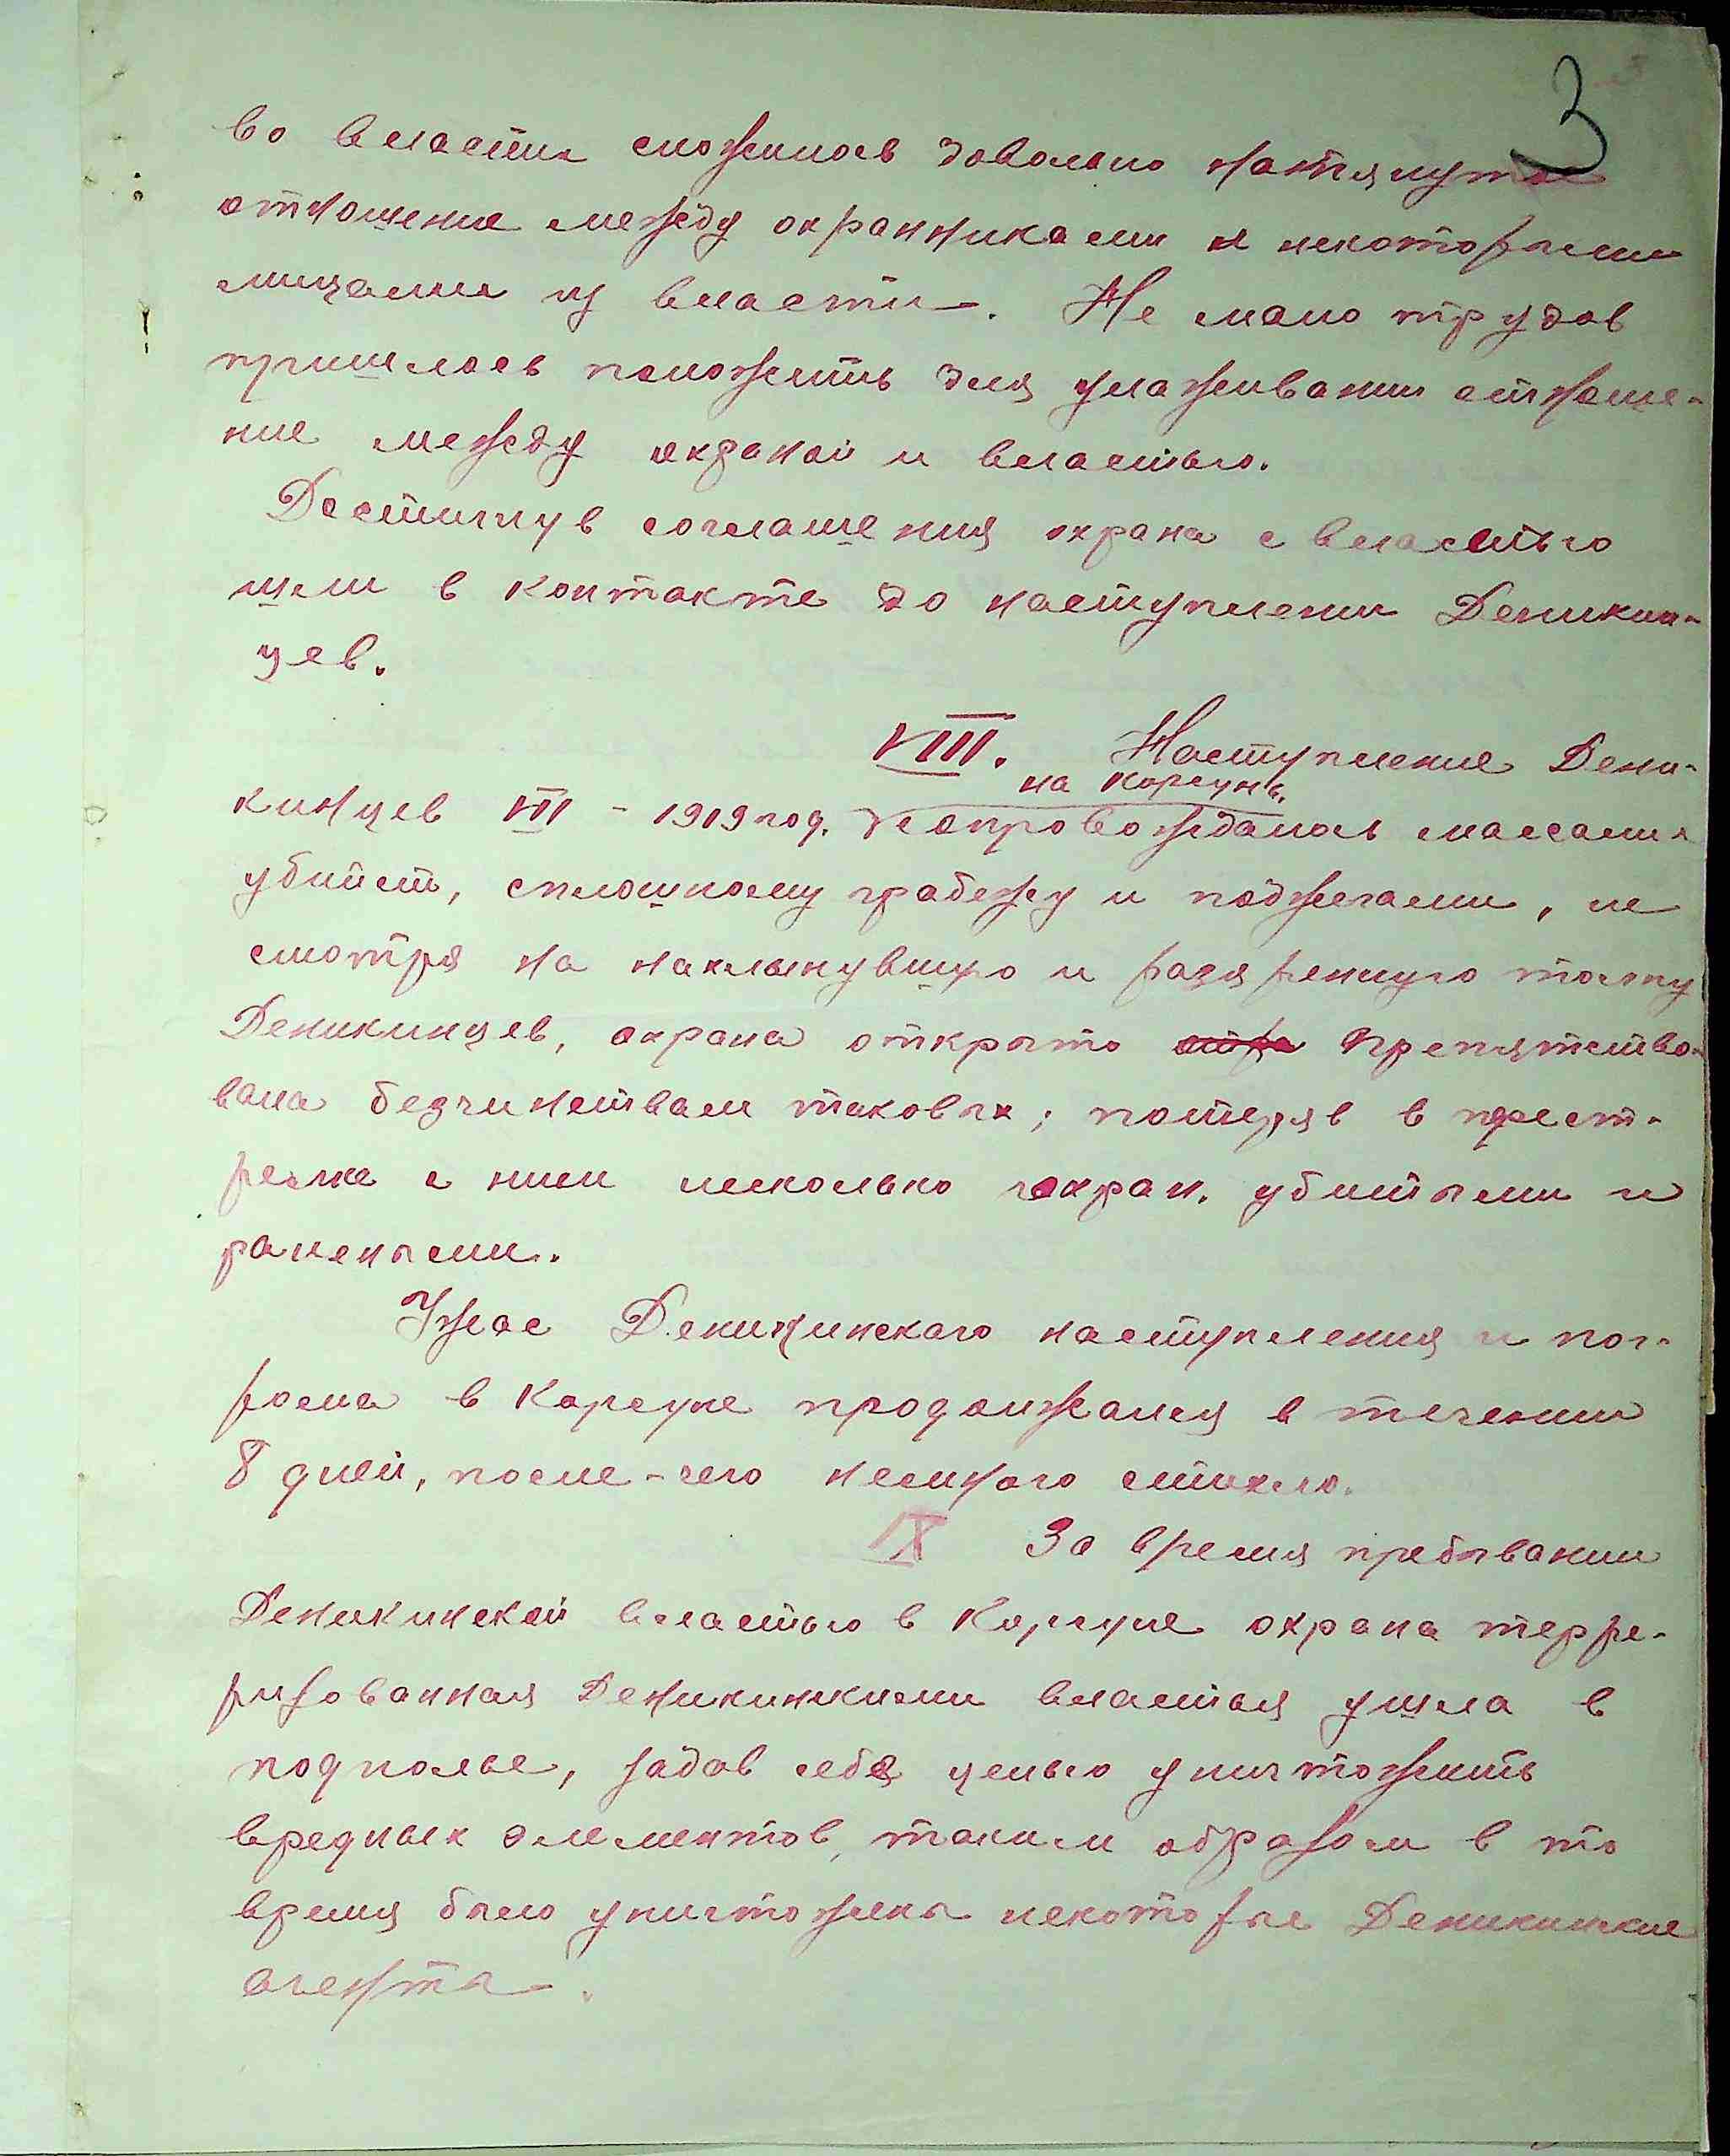 3
во власти сложилось довольно натянутое
отношение между охранниками и некоторыми
лицами из власти. Не мало трудов
пришлось положить для улаживании отноше-
ние между охраной и властью.
Достигнув соглашения охрана с властью
шли в контакте до наступлении Деникин-
цев.
VIII. Наступление Дени-
на Корсунь.
кинцев VIII - 1919 год. сопровождалось массами
убийств, сплошному грабежу и поджогами, не
смотря на нахлынувшую и разяренную толпу
Деникинцев, охрана открыто препятство-
вала безчинствам таковых; потеряв в перест-
релке с ними несколько охран. убитыми и
ранеными.
Ужас Деникинскаго наступления и пог-
рома в Корсуне продолжался в течении
8 дней, после-чего немного стихло.
IX За время пребывании
Деникинской властью в Корсуне охрана терре-
ризованная Деникинскими властья ушла в
подполье, задав себе целью уничтожить
вредных элементов, таким образом в то
время было уничтожены некоторые Деникинские
агенты.